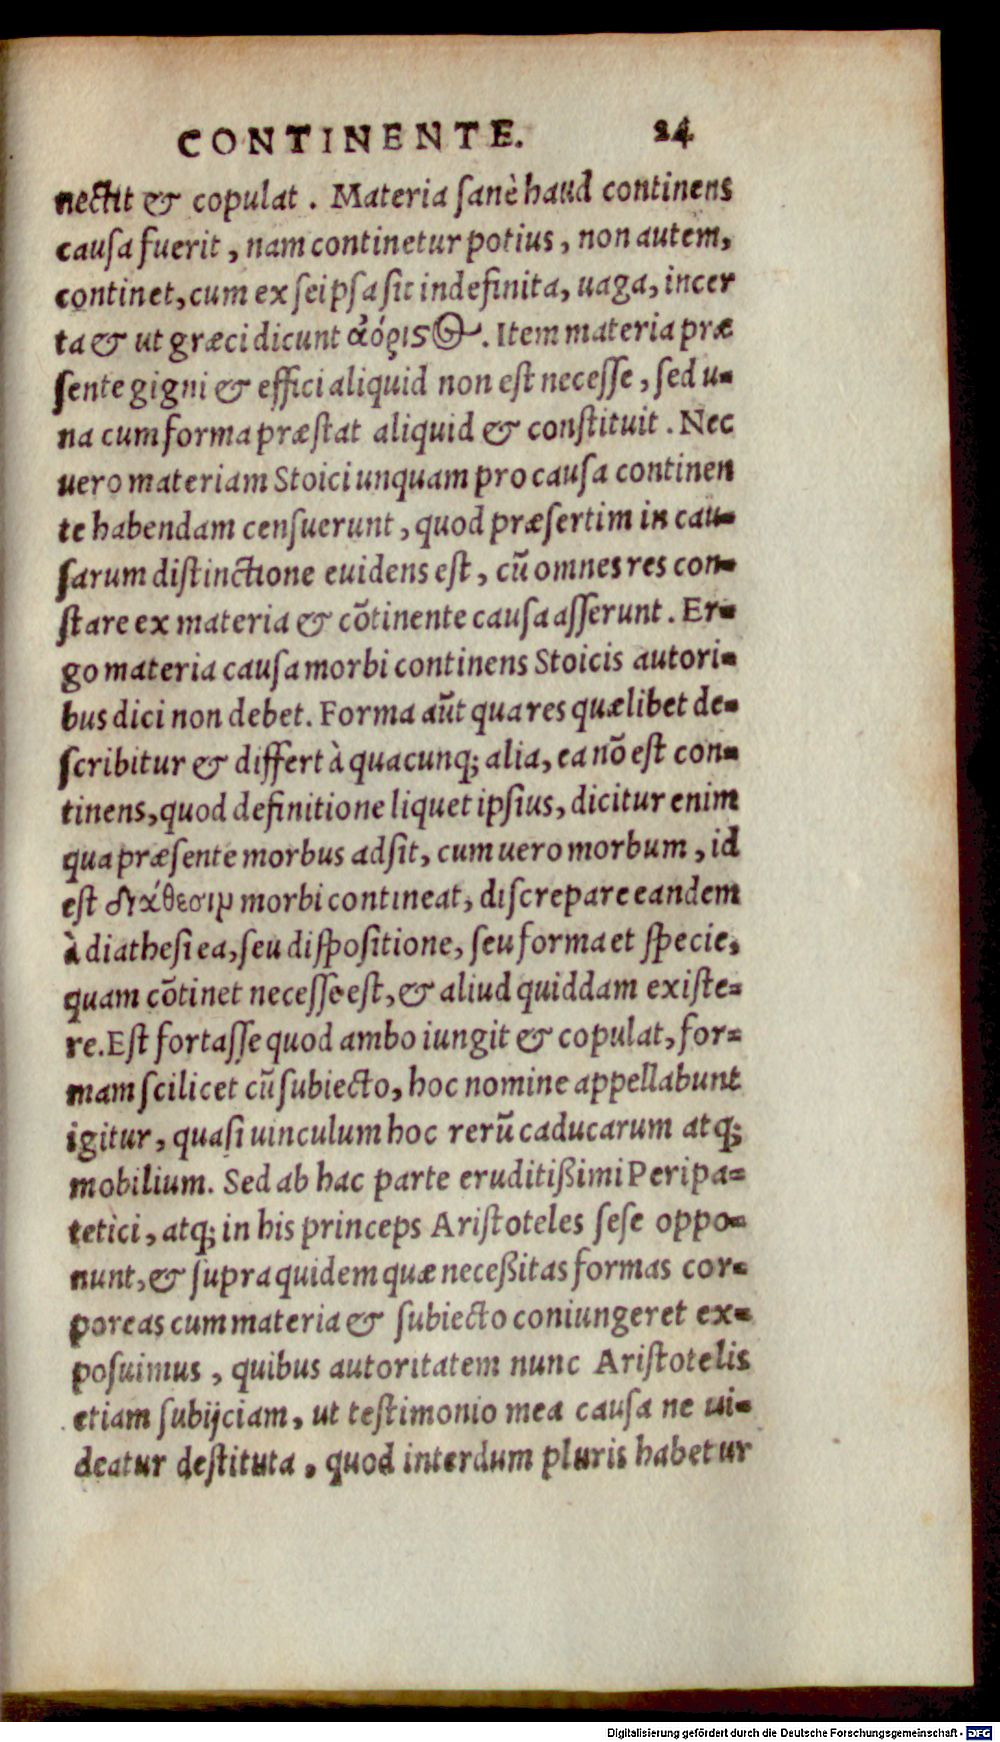 CONTINENTE. 24
nectit & copulat. Materia ſanè haud continens
cauſa fuerit, nam continetur potius, non autem,
continet, cum ex ſeipſa ſit indefinita, uaga, incer
ta & ut græci dicunt ἀόριϛος. Item materia præ
ſente gigni & effici aliquid non est neceſſe, ſed u-
na cum forma præſtat aliquid & conſtituit. Nec
uero materiam Stoici unquam pro cauſa continen
te habendam cenſuerunt, quod præſertim in cau-
ſarum diſtinctione euidens eſt, cū omnes res con-
ſtare ex materia & cōtinente cauſa aſſerunt. Er-
go materia cauſa morbi continens Stoicis autori-
bus dici non debet. Forma aūt qua res quælibet de-
ſcribitur & differt à quacunq; alia, ea nō eſt con-
tinens, quod definitione liquet ipſius, dicitur enim
qua præſente morbus adſit, cum uero morbum, id
eſt διάθεσιμ morbi contineat, diſcrepare eandem
à diatheſi ea, ſeu diſpoſitione, ſeu forma et ſpecie,
quam cōtinet neceſſe eſt, & aliud quiddam exiſte-
re. Eſt fortaſſe quod ambo iungit & copulat, for-
mam ſcilicet cū ſubiecto, hoc nomine appellabunt
igitur, quaſi uinculum hoc rerū caducarum atq;
mobilium. Sed ab hac parte eruditißimi Peripa-
tetici, atq; in his princeps Ariſtoteles ſeſe oppo-
nunt, & ſupra quidem quæ neceßitas formas cor-
poreas cum materia & ſubiecto coniungeret ex-
poſuimus, quibus autoritatem nunc Ariſtotelis
etiam ſubijciam, ut teſtimonio mea cauſa ne ui-
deatur deſtituta, quod interdum pluris habetur
Digitalisierung gefördert durch die Deutsche Forschungsgemeinschaft - DFG